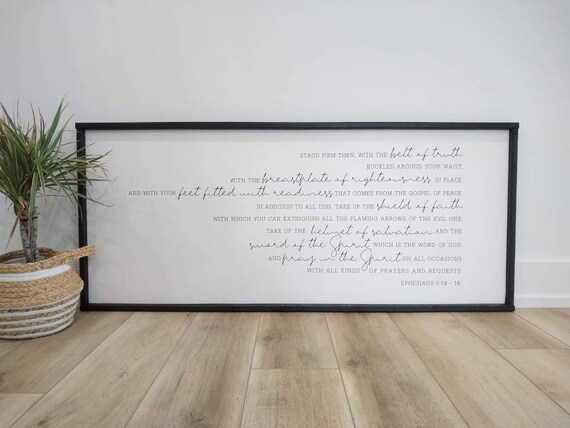 STAND FIRM THEN, WITH THE belt of truth
BUCKLED AROUND YOUR WAIST,
WITH THE breastplate of righteousness IN PLACE,
AND WITH YOUR feet fitted with readiness THAT COMES FROM THE GOSPEL OF PEACE
IN ADDITION TO ALL THIS, TAKE UP THE shield of faith
WITH WHICH YOU CAN EXTINGUISH ALL THE FLAMING ARROWS OF THE EVIL ONE
TAKE UP THE helmet of salvation AND THE
sword of the Spirit, WHICH IS THE WORD OF GOD
AND pray in the Spirit ON ALL OCCASIONS
WITH ALL KINDS OF PRAYERS AND REQUESTS
EPHESIANS 6:14 - 18